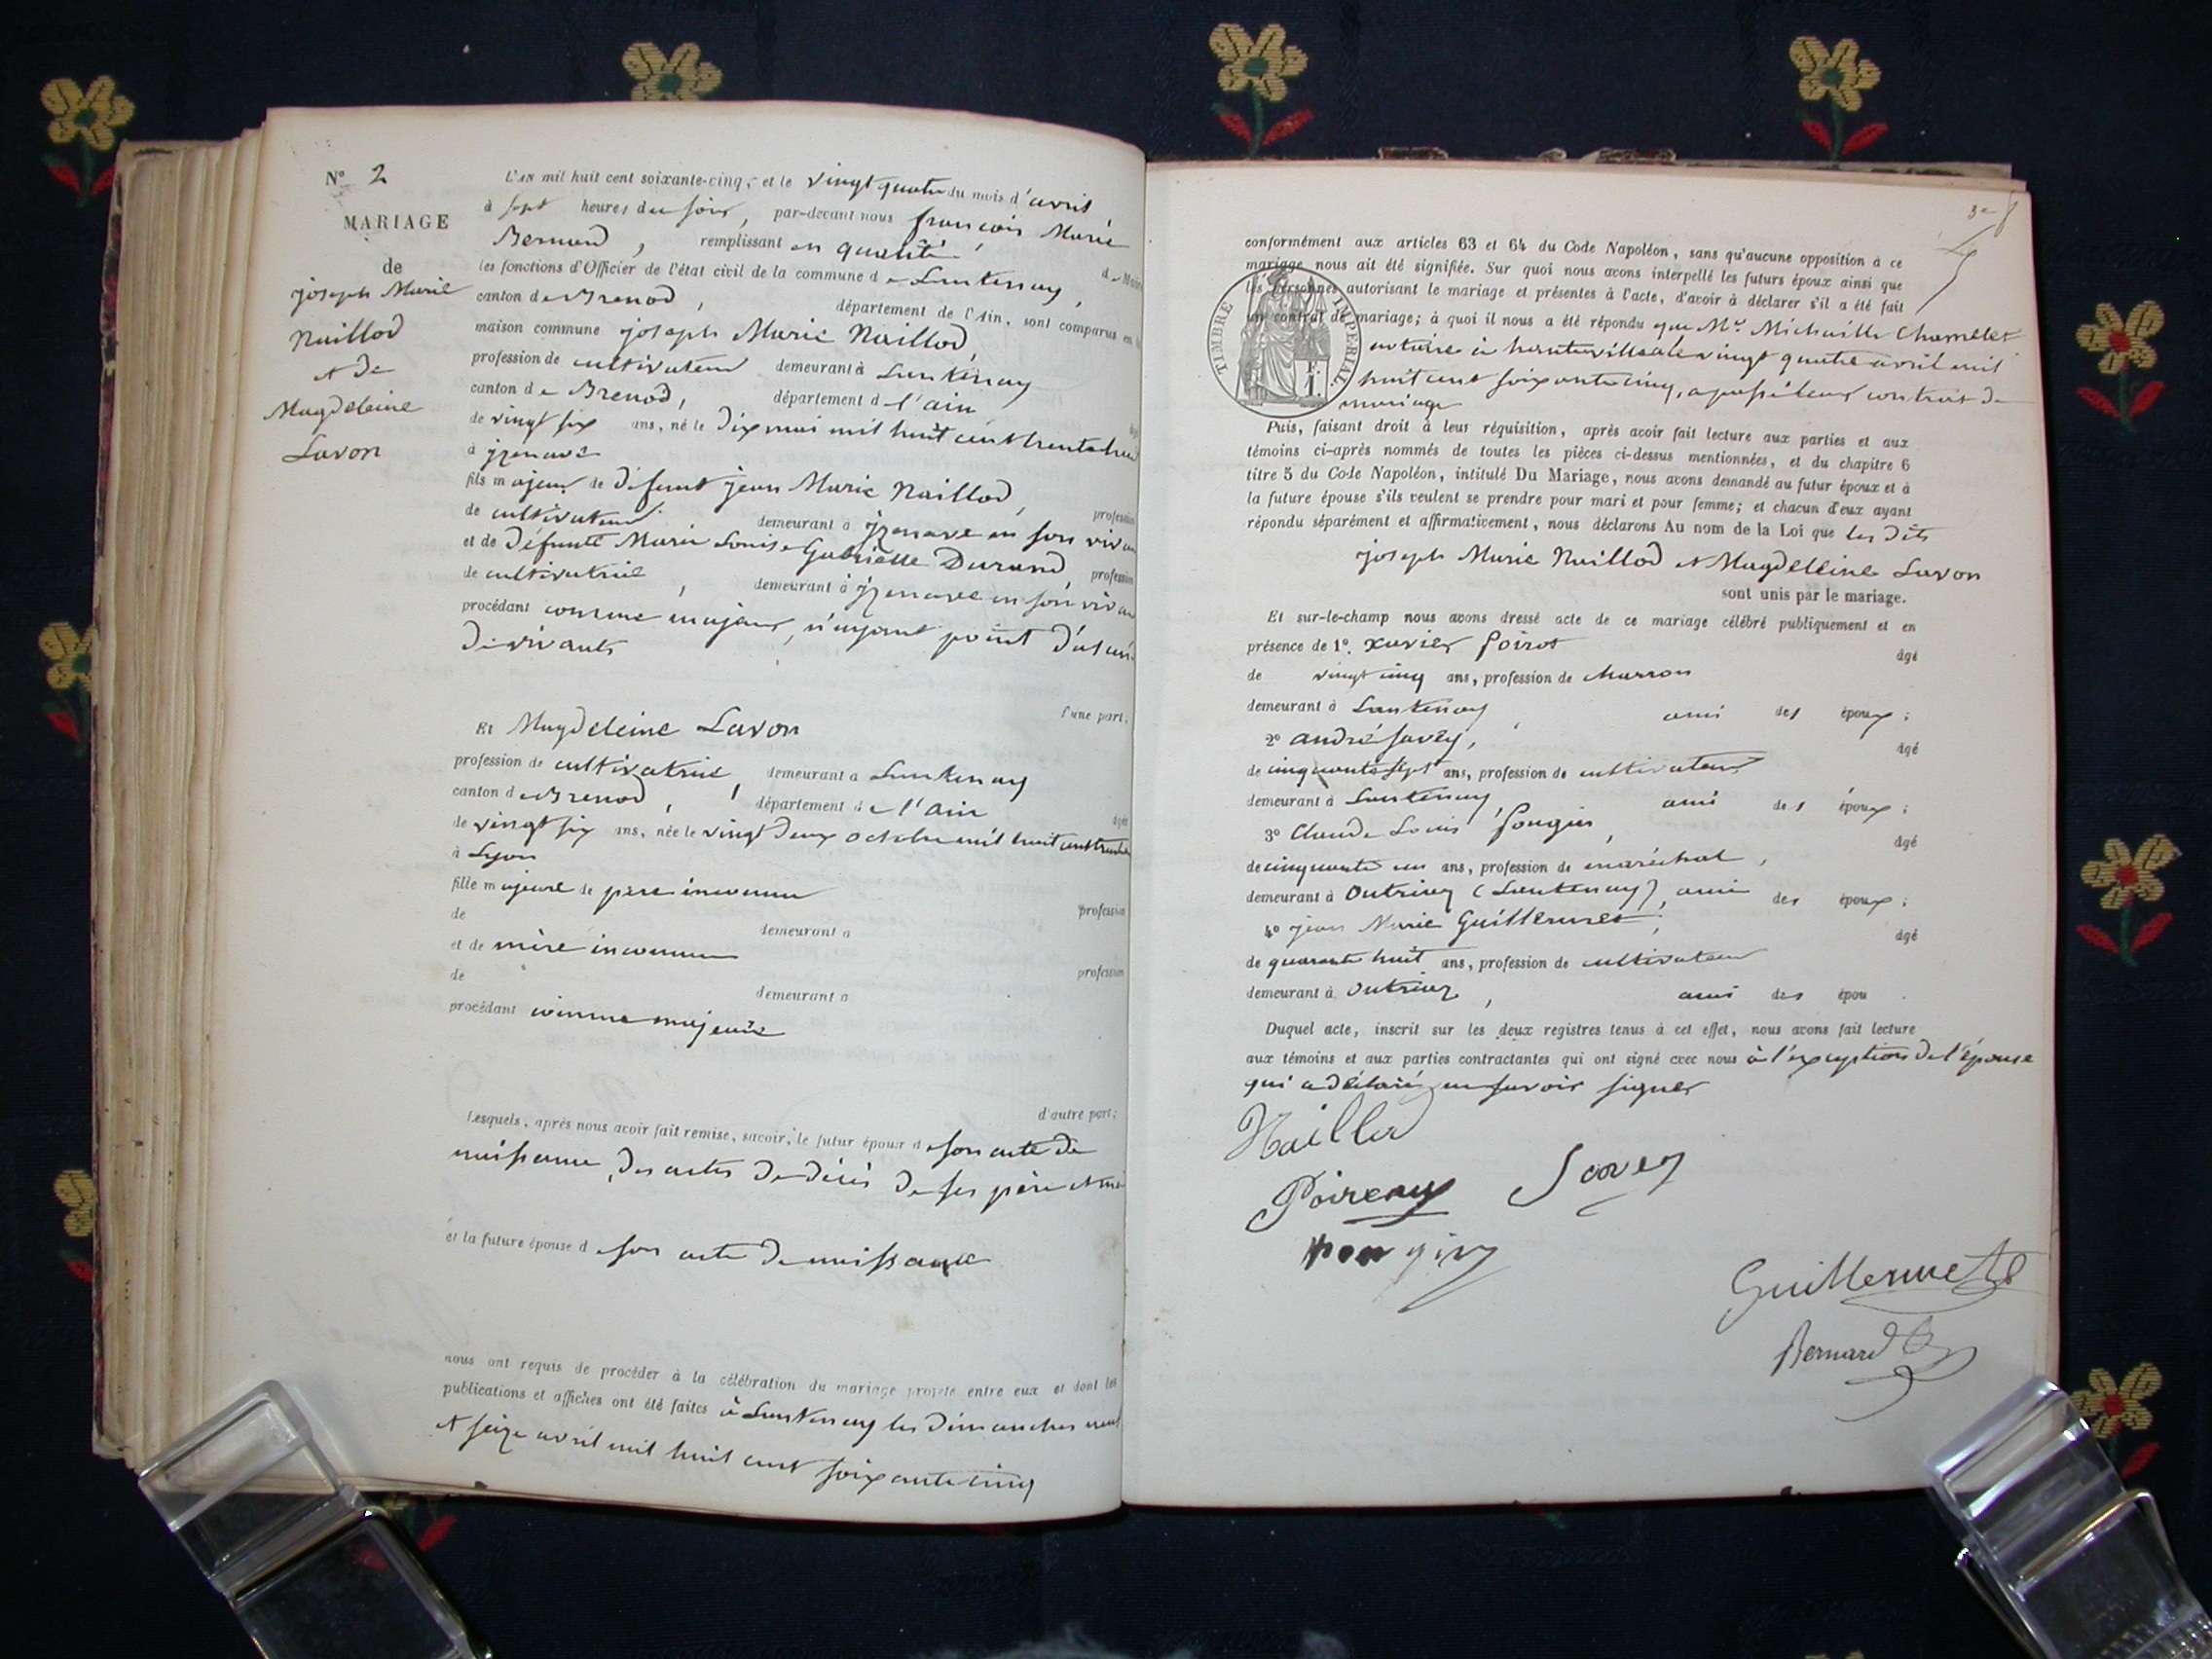 N° 2
MARIAGE
de
joseph Marie
Naillod
et de
Magdeleine
Lavon
L'an mil huit cent soixante-cinq, et le vingt quatre du mois d'avril,
à sept heures du soir, par-devant nous françois Marie
Bernard, remplissant en qualité d
les fonctions d'Officier de l'état civil de la commune de Lantenay,
canton de Brenod, département de l'Ain, sont comparus en
maison commune joseph Marie Naillod,
profession de cultivateur demeurant à Lantenay
canton de Brenod, département de l'ain
de vingt six ans, né le dix mai mil huit cent trente huit
à izenave
fils majeur de défunt jean Marie Naillod, profession
de cultivateur demeurant à izenave en son vivant
et de défunte Marie Louise Gabrielle Durand, profession
de cultivatrice, demeurant à izenave en son vivant
procédant comme majeur, n'ayant point d'
de vivants
l'une part;
Et Magdeleine Lavon
profession de cultivatrice, demeurant à Lantenay
canton de Brenod, département de l'ain
de vingt six ans, née le vingt deux octobre mil huit cent trente
à Lyon
fille majeure de père inconnu
de profession
demeurant à
et de mère inconnue
de profession
demeurant à
procédant comme majeure
d'autre part;
Lesquels, après nous avoir fait remise, savoir, le futur époux de son acte de
naissance, des actes de décès de ses père et
et la future épouse de son acte de naissance
nous ont requis de procéder à la célébration du mariage projeté entre eux et dont les
publications et affiches ont été faites à Lantenay les dimanches neuf
et seize avril mil huit cent soixante cinq
conformément aux articles 63 et 64 du Code Napoléon, sans qu'aucune opposition à ce
mariage nous ait été signifiée. Sur quoi nous avons interpellé les futurs époux ainsi que
les personnes autorisant le mariage et présentes à l'acte, d'avoir à déclarer s'il a été fait
un contrat de mariage; à quoi il nous a été répondu que Me Michaille Chamelet
notaire à hauteville le vingt quatre avril mil
huit cent soixante cinq, a passé leur contrat de
mariage
TIMBRE IMPÉRIAL
Puis, faisant droit à leur réquisition, après avoir fait lecture aux parties et aux
témoins ci-après nommés de toutes les pièces ci-dessus mentionnées, et du chapitre 6
titre 5 du Code Napoléon, intitulé Du Mariage, nous avons demandé au futur époux et à
la future épouse s'ils veulent se prendre pour mari et pour femme; et chacun d'eux ayant
répondu séparément et affirmativement, nous déclarons Au nom de la Loi que les dits
joseph Marie Naillod et Magdeleine Lavon
sont unis par le mariage.
Et sur-le-champ nous avons dressé acte de ce mariage célébré publiquement et en
présence de 1°. xavier Poirot âgé
de vingt cinq ans, profession de charron
demeurant à Lantenay, ami des époux;
2° andré Savey, âgé
de cinquante sept ans, profession de cultivateur
demeurant à Lantenay, ami des époux;
3° Claude Louis Pongin, âgé
de cinquante un ans, profession de maréchal,
demeurant à Outriaz (Lantenay), ami des époux;
4° jean Marie Guillermet, âgé
de quarante huit ans, profession de cultivateur
demeurant à Outriaz, ami des épou
Duquel acte, inscrit sur les deux registres tenus à cet effet, nous avons fait lecture
aux témoins et aux parties contractantes qui ont signé avec nous à l'exception de l'épouse
qui a déclaré ne savoir signer
Naillod
Savey
pongin
Guillermet
Bernard